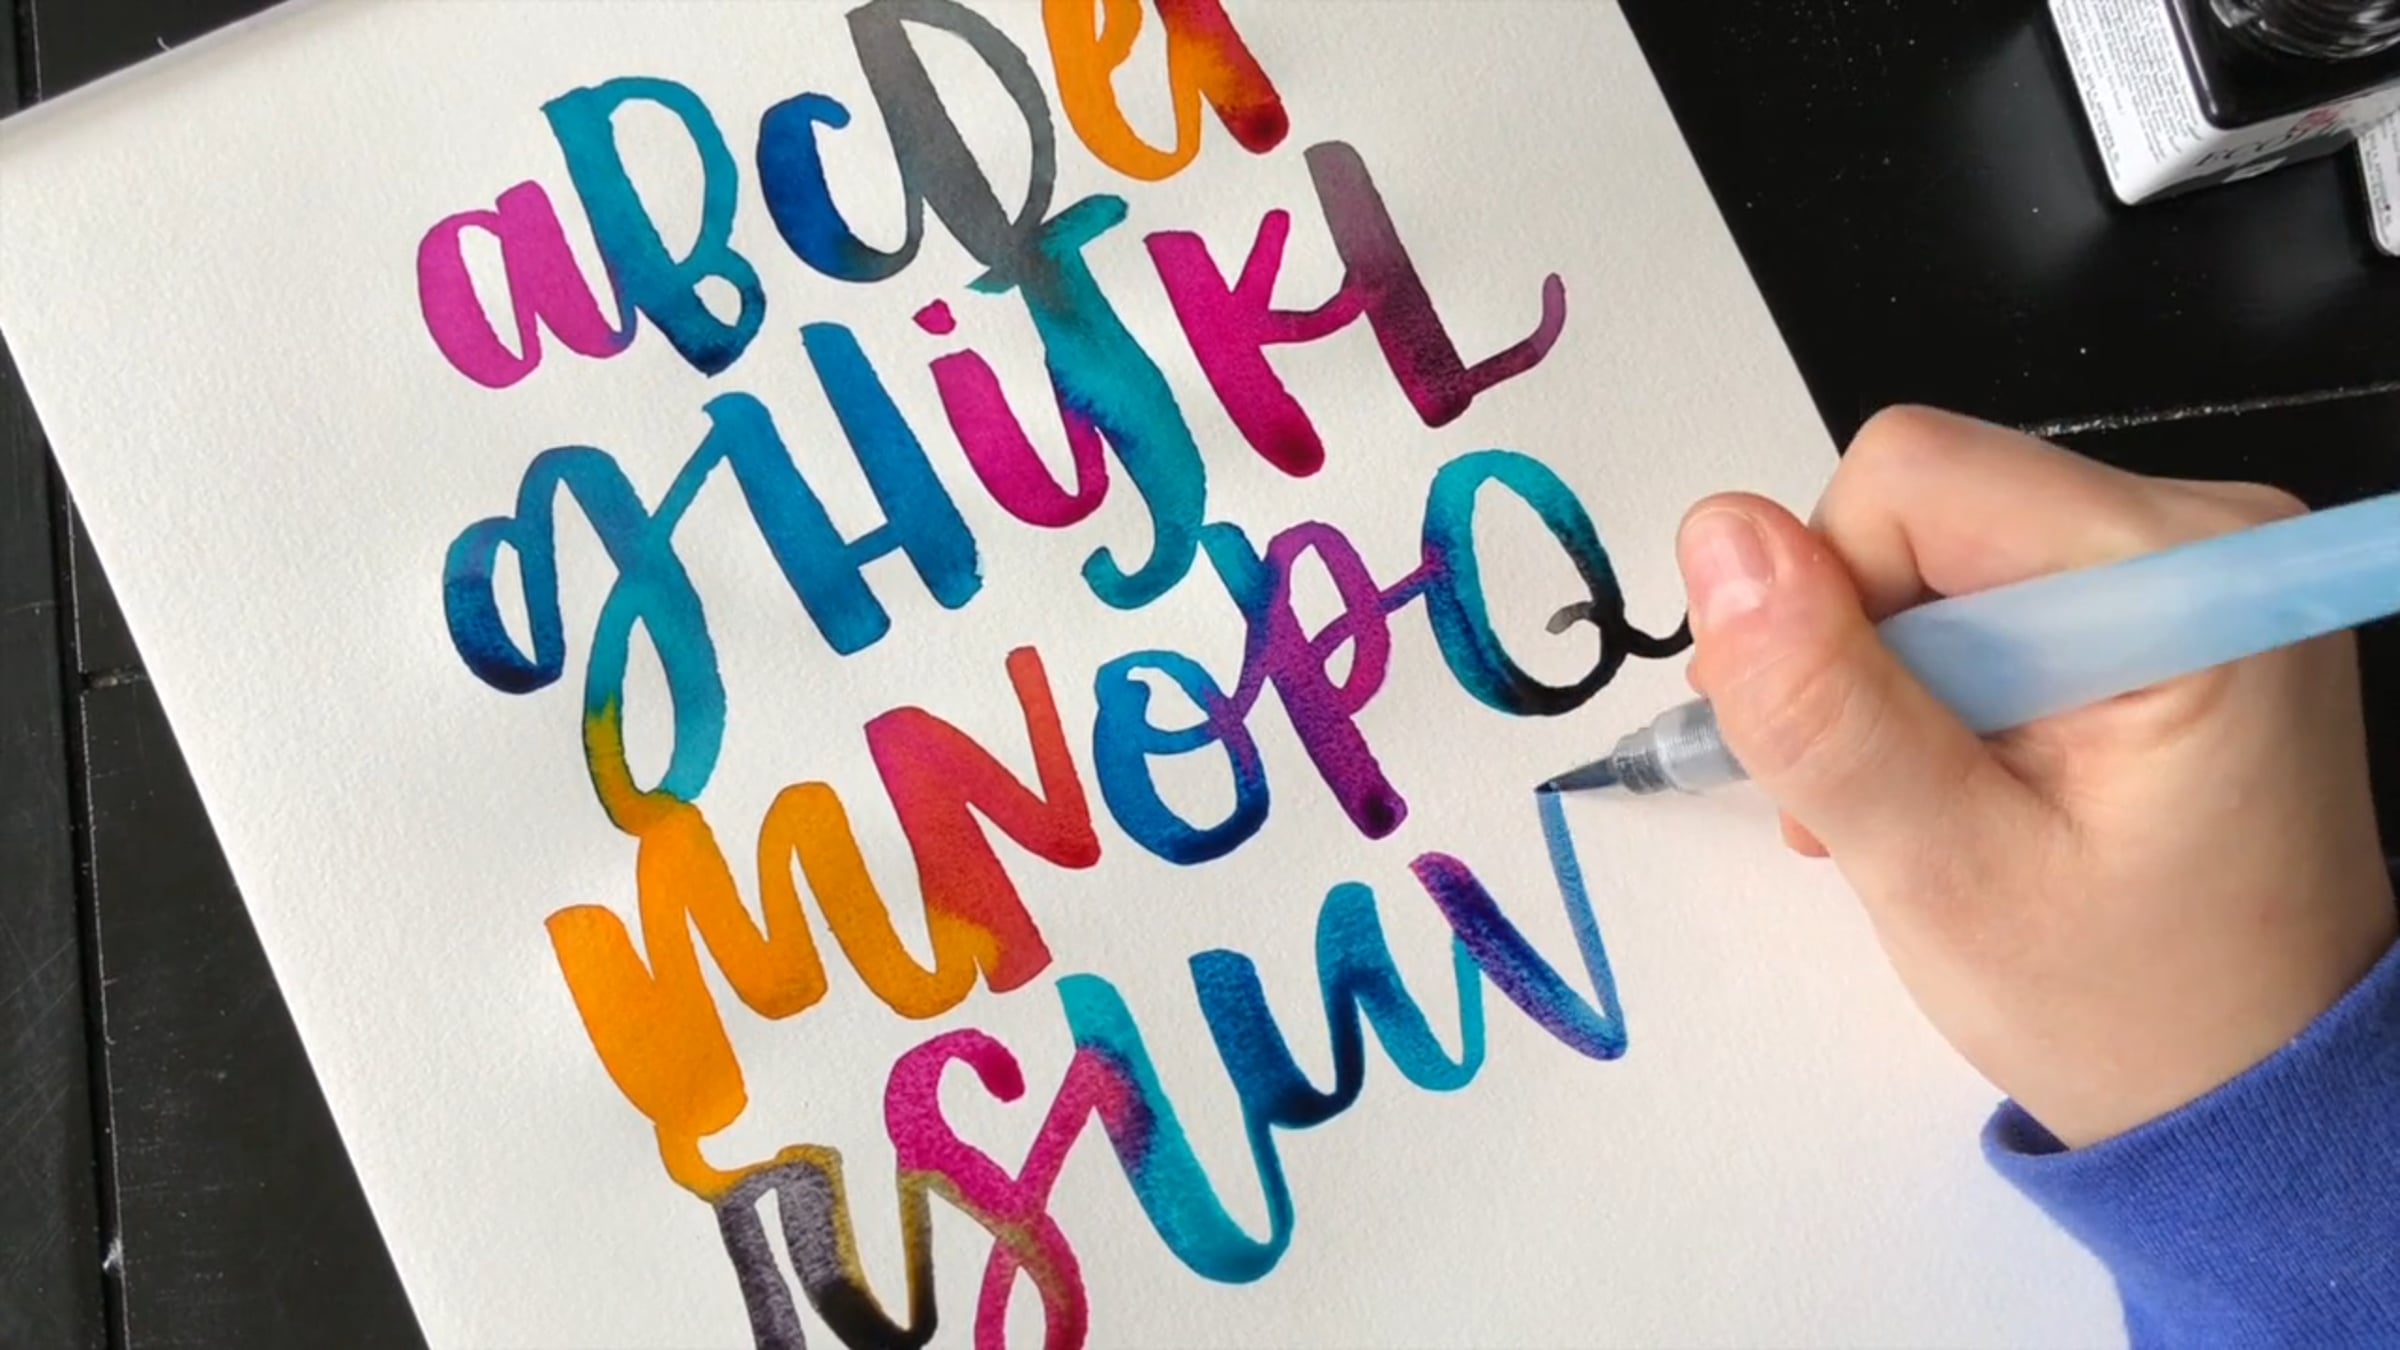 aBCDef
gHijKL
mNOPQ
rStuv